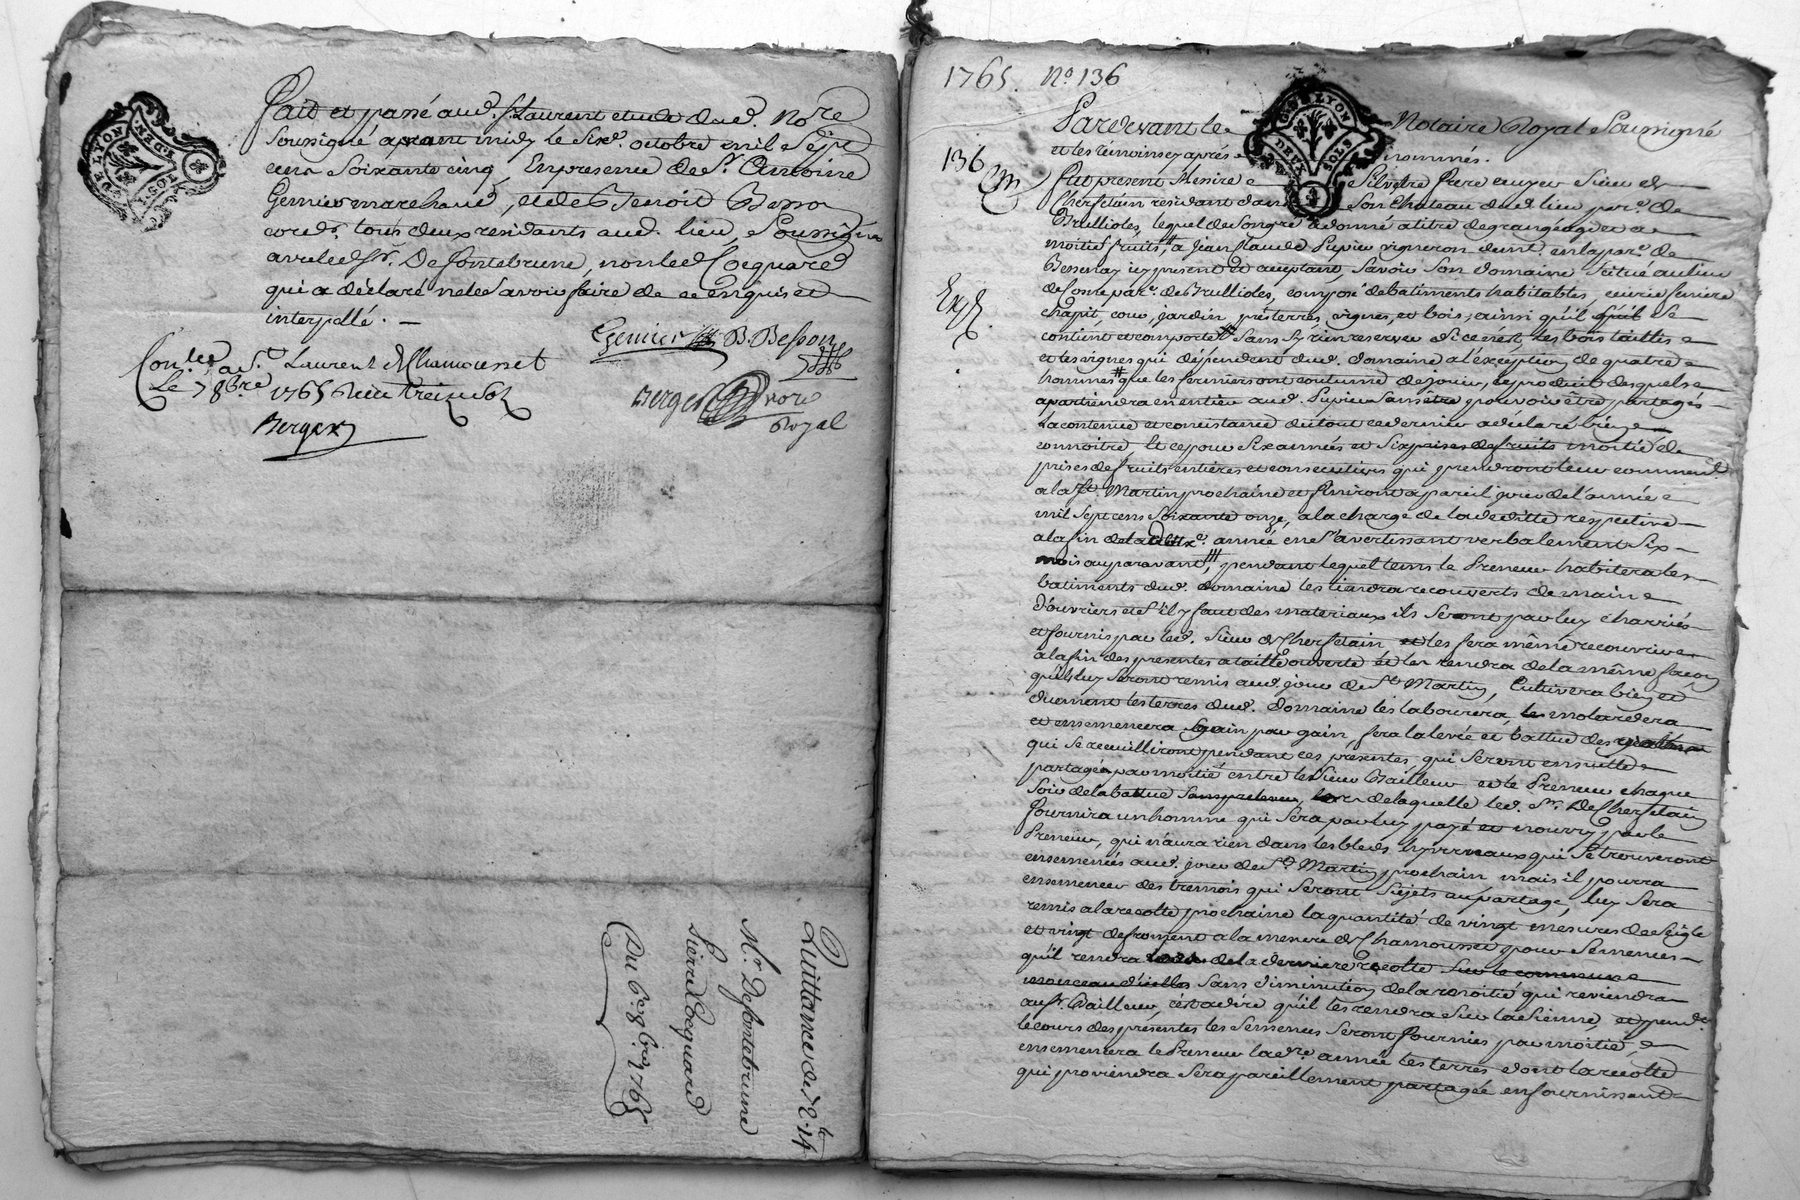 GEN. DE LYON
DEUX SOLS
Fait et passé aud. St. Laurent etude dud. Nore
Soussigné avant midy le Sixe. octobre mil Sept
cens Soixante cinq, En presence de Sr. Antoine
Genier marchand, et de Benoit Besson
cordr. tous deux residants aud. lieu, Soussignés
avec led. Sr. Defontebrune, non led. Cocquard
qui a déclaré ne le Savoir faire de ce enquis et
interpellé. —
Genier B. Besson
Conlé. a St. Laurent de Chamousset
Le 7 8bre 1765 Reçu treize sols
Berger
Berger nore
Royal
Quittance de 72 . 14
Mr. Defontebrune
Pierre Cocquard
Du 6e. 8bre. 1765
1765. No. 136
GEN. DE LYON
DEUX SOLS
Pardevant le Notaire Royal Soussigné
et les témoins cy après nommés.
136
fut present Messire Silvestre frere ecuyer Sieur de
Chersetain residant dans Son Chateau dud. lieu parr. de
Brullioles, lequel de Son gré a donné a titre de grangéage et a
moitié fruits, a Jean Claude Pupier vigneron demt. en la parr. de
Bessenay icy present et acceptant, Savoir Son domaine Situé au lieu
de parr. de Brullioles, composé de batiments habitables, ecurie feniere
Exp.
chapit, cour, jardin, prés terres, vignes, et bois, ainsi qu'il Se
contient et comporte Sans S'y rien reserver Si ce n'est les bois taillis
et les vignes qui dépendent dud. domaine a l'exception de quatre
hommes que les fermiers ont coutume de jouir, le produit desquels
apartiendra en entier aud. Pupier Sans etre pouvoir être partagés
La contenue et consistance du tout ce dernier a déclaré bien
connoitre, Et ce pour Six années et Six prises de fruits moitié de
prises de fruits entières et consecutives qui prendront leur commend.
a la St. Martin prochaine et finiront a pareil jour de l'année
mil Sept cens Soixante onze, a la charge de la deditte respective
a la fin de la année en S'avertissant verbalement Six
mois auparavant, pendant lequel tems le Preneur habitera les
batiments dud. domaine les tiendra recouverts de main
d'ouvriers et S'il y faut des materiaux ils Seront par luy charriés
et fournis par led. Sieur de Chersetain et les fera même recouvrir
a la fin des presentes a taille ouverte et les rendra de la même façon
qu'ils luy Seront remis aud. jour de St. Martin, Cultivera bien et
duement les terres dud. domaine les labourera, les molardera
et ensemencera gain par gain, fera la levée et battue des
qui Se recueilliront pendant ces presentes, qui Seront ensuitte
partagés par moitié entre le Sieur Bailleur et le Preneur chaque
Soir de la battue Sans prelever, lors de laquelle led. Sr. De Chersetain
fournira un homme qui Sera par luy payé et nourry par le
Preneur, qui n'aura rien dans les bleds hyverneaux qui Se trouveront
ensemencés aud. jour de St. Martin prochain mais il pourra
ensemencer des tremois qui Seront Sujets au partage, luy Sera
remis a la recolte prochaine la quantité de vingt mesures de Seigle
et vingt de froment a la mesure de Chamousset pour Semences
qu'il rendra lors de la derniere recolte Sur le commun
monceau d'icelles Sans diminution de la moitié qui reviendra
au Sr. Bailleur, c'est a dire qu'il les rendra Sur la Sienne, et pendt.
le cours des présentes les Semences Seront fournies par moitié,
ensemencera le Preneur la dre. année les terres dont la recolte
qui proviendra Sera pareillement partagée en fournissant